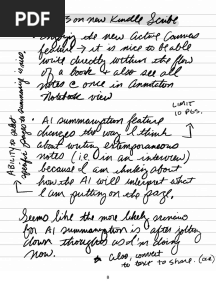 PDF
s on new Kindle Scribe
• Enjoying the new Active Canvas
feature → it is nice to be able
write directly within the flow
of a book & also see all
notes @ once in Annotation
Notebook view
LIMIT
10 PGS.
• AI summarization feature
changes the way I think
about writing extemporaneous
notes (i.e. in an interview)
because I am thinking about
how the AI will interpret what
I am putting on the page.
→ ABILITY to select
specific pages to summarize is nice
Seems like the more likely scenario
for AI summarization is after jotting
down thoughts as I'm doing
now.
* Also, convert
to text to share.